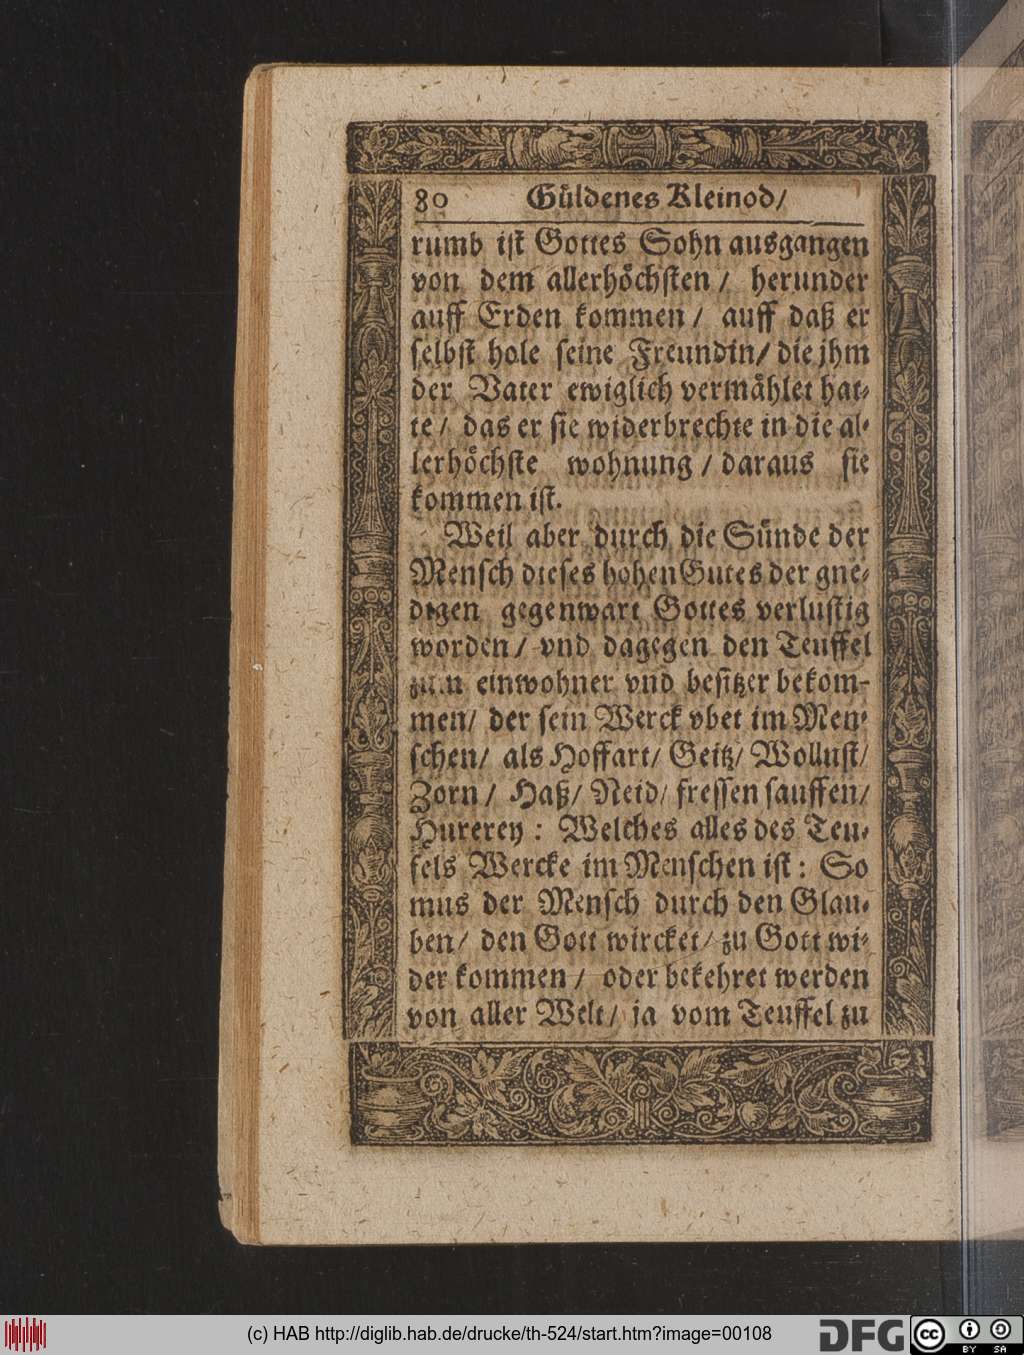 80 Güldenes Kleinod/
rumb ist Gottes Sohn ausgangen
von dem allerhöchsten / herunder
auff Erden kommen / auff daß er
selbst hole seine Freundin/ die jhm
der Vater ewiglich vermählet hat-
te / das er sie widerbrechte in die al-
lerhöchste wohnung / daraus sie
kommen ist.
Weil aber durch die Sünde der
Mensch dieses hohen Gutes der gne-
digen gegenwart Gottes verlustig
worden / vnd dagegen den Teuffel
zum einwohner vnd besitzer bekom-
men/ der sein Werck vbet im Men-
schen/ als Hoffart/ Geitz/ Wollust/
Zorn / Haß/ Neid/ fressen sauffen/
Hurerey : Welches alles des Teu-
fels Wercke im Menschen ist : So
mus der Mensch durch den Glau-
ben/ den Gott wircket/ zu Gott wi-
der kommen / oder bekehret werden
von aller Welt/ ja vom Teuffel zu
(c) HAB http://diglib.hab.de/drucke/th-524/start.htm?image=00108
DFG
cc
BY SA